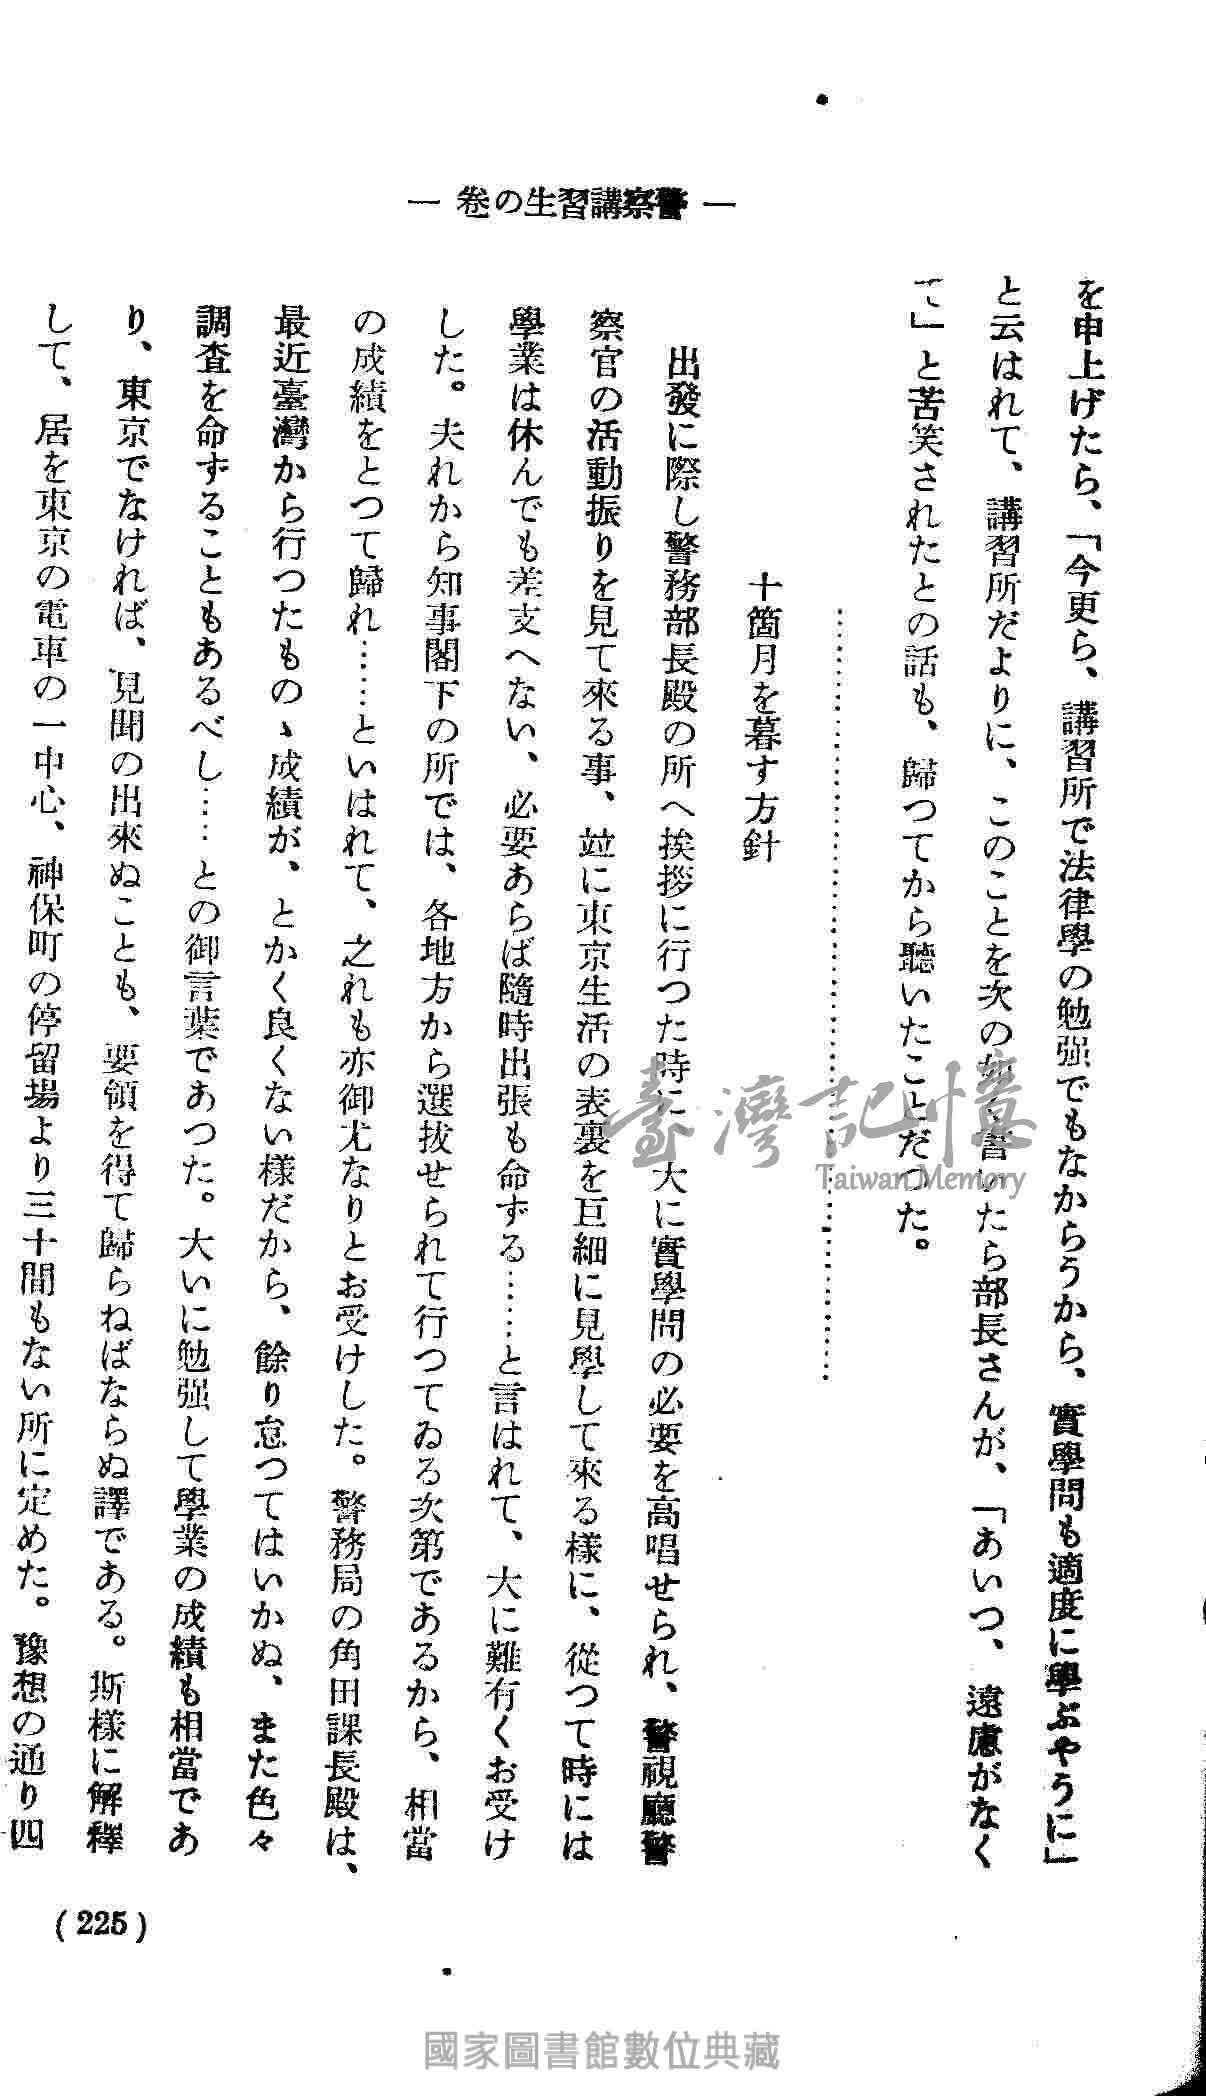 ― 警察講習生の巻 ―
を申上げたら、「今更ら、講習所で法律學の勉强でもなからうから、實學問も適度に學ぶやうに」
と云はれて、講習所だよりに、このことを次の如 書いたら部長さんが、「あいつ、遠慮がなく
て」と苦笑されたとの話も、歸つてから聽いたことだつた。
十箇月を暮す方針
出發に際し警務部長殿の所へ挨拶に行つた時に 大に實學問の必要を高唱せられ、警視廳警
察官の活動振りを見て來る事、竝に東京生活の表裏を巨細に見學して來る樣に、從つて時には
學業は休んでも差支へない、必要あらば隨時出張も命ずる……と言はれて、大に難有くお受け
した。夫れから知事閣下の所では、各地方から選拔せられて行つてゐる次第であるから、相當
の成績をとつて歸れ……といはれて、之れも亦御尤なりとお受けした。警務局の角田課長殿は、
最近臺灣から行つたものゝ成績が、とかく良くない樣だから、餘り怠つてはいかぬ、また色々
調査を命ずることもあるべし……との御言葉であつた。大いに勉强して學業の成績も相當であ
り、東京でなければ、見聞の出來ぬことも、要領を得て歸らねばならぬ譯である。斯樣に解釋
して、居を東京の電車の一中心、神保町の停留場より三十間もない所に定めた。豫想の通り四
(225)
臺灣記憶
Taiwan Memory
國家圖書館數位典藏